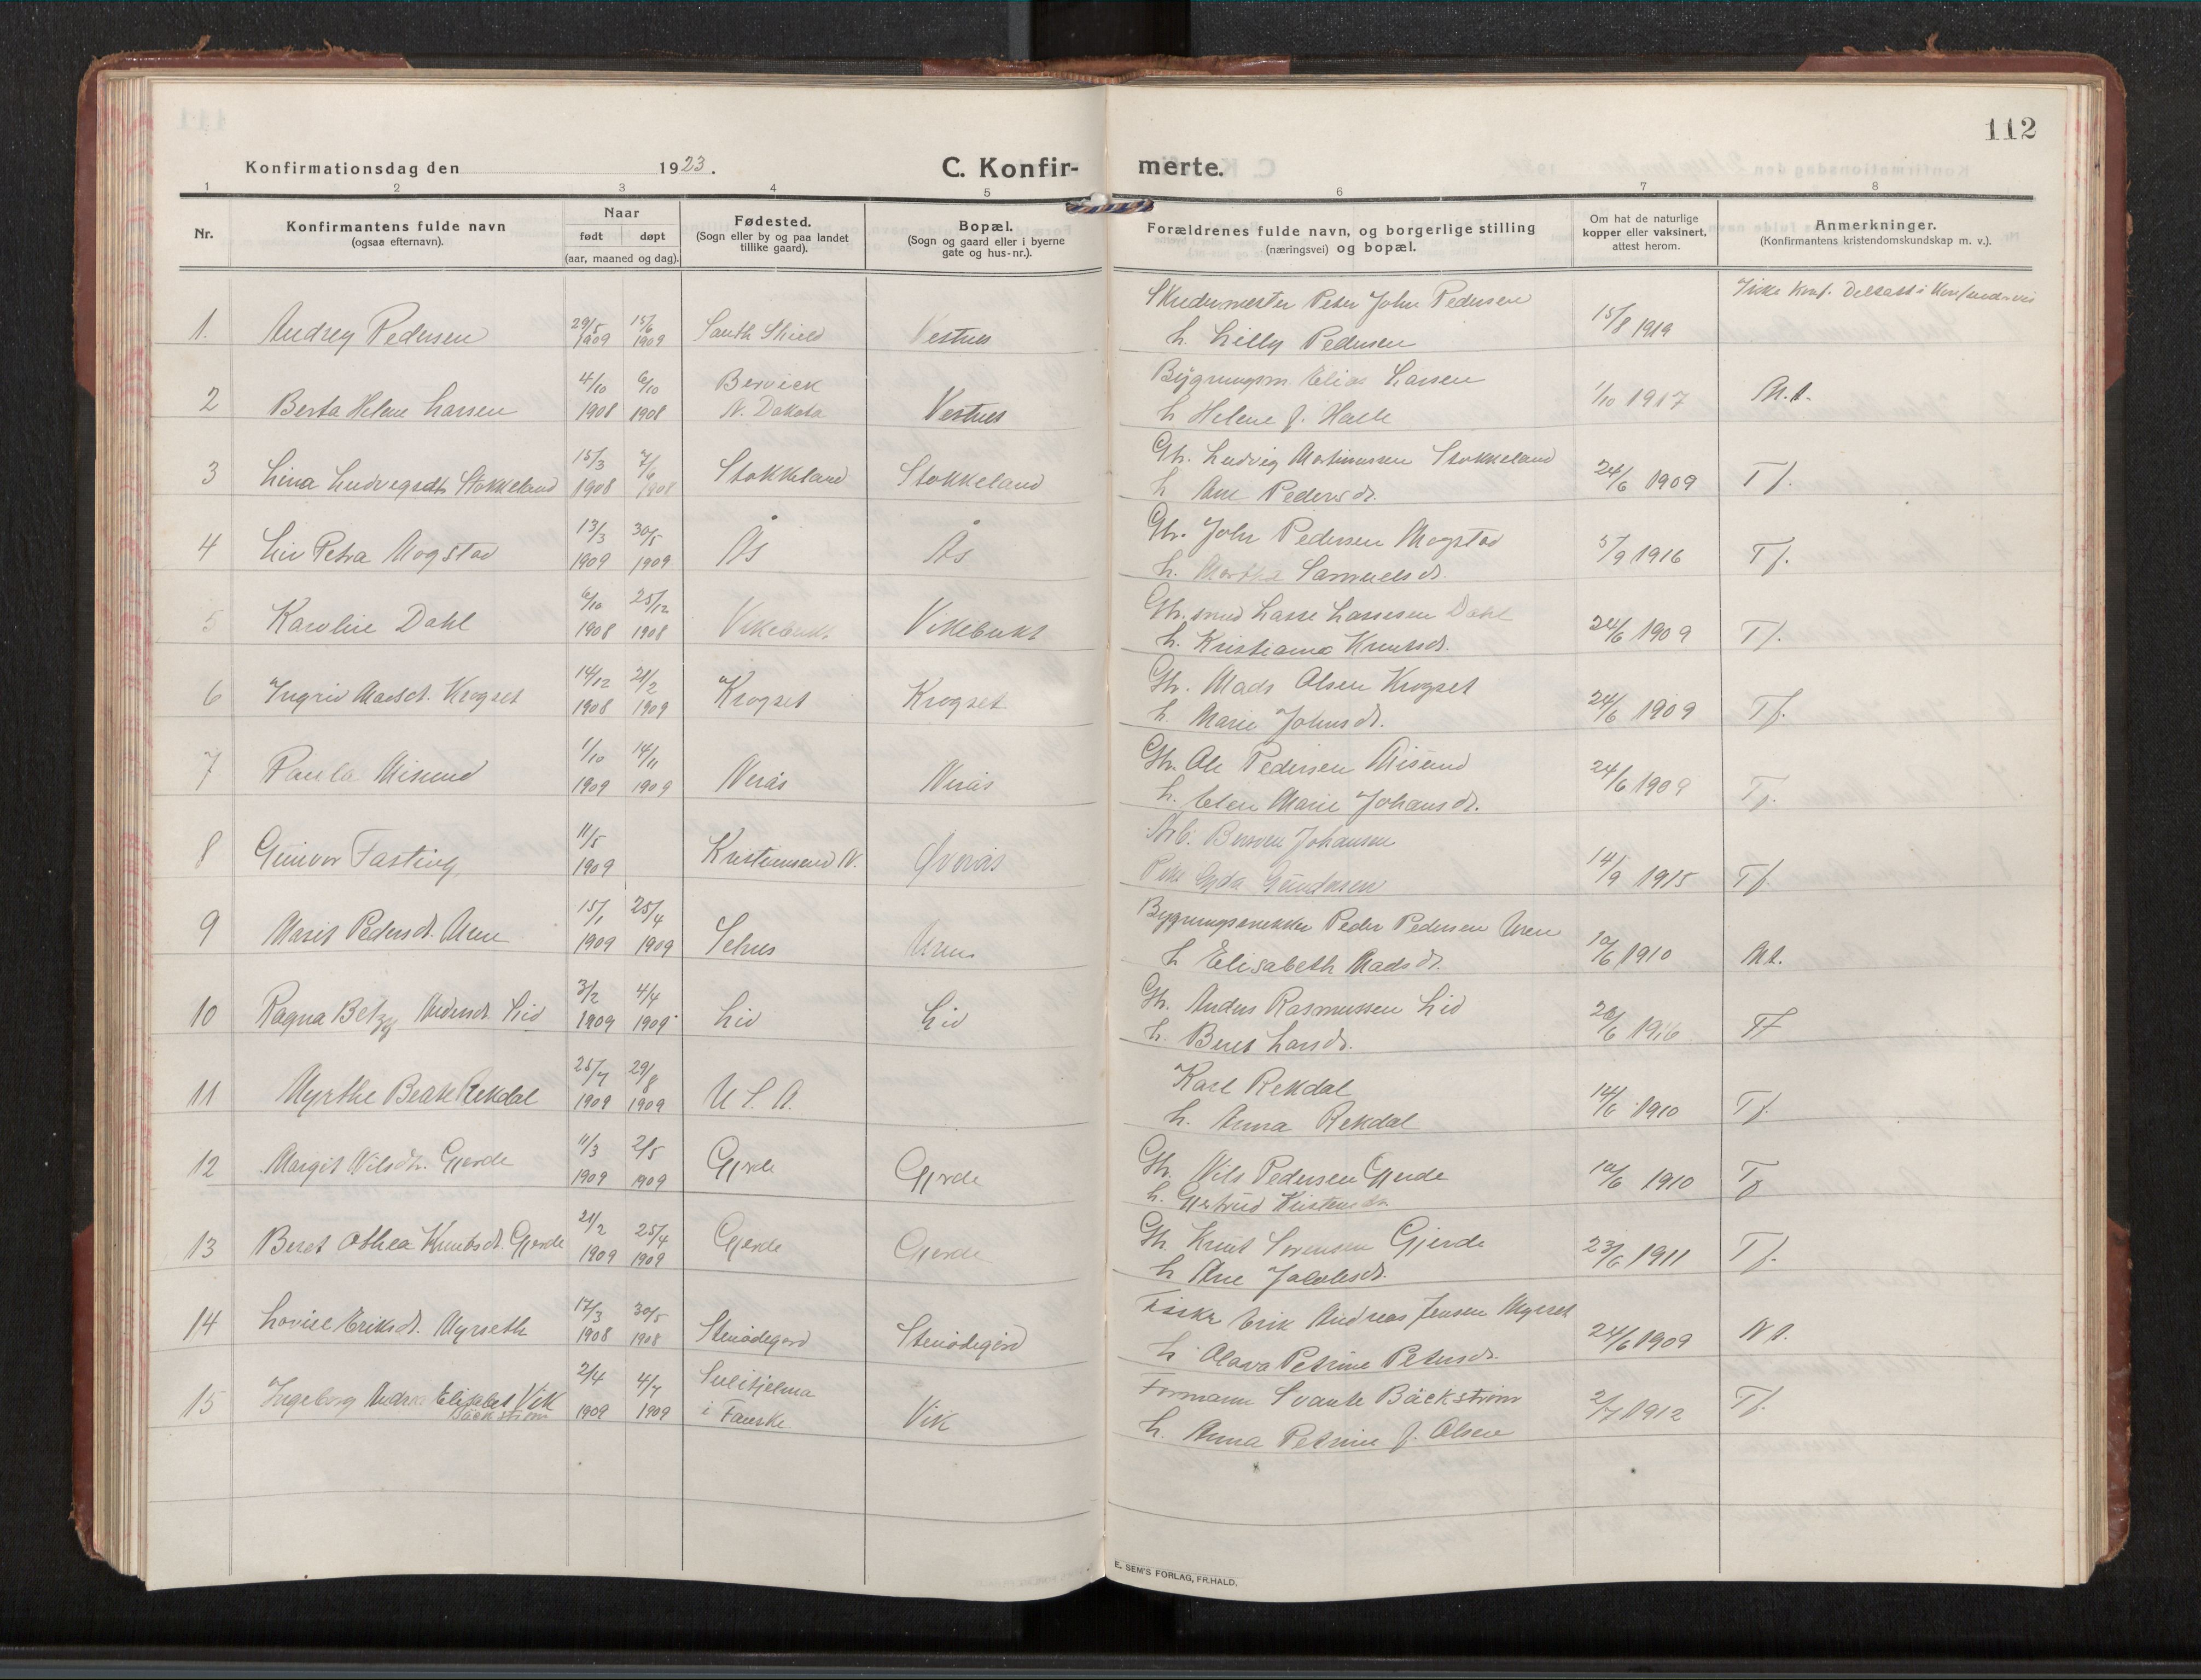 112
Konfirmationsdag den 1923.
C. Konfir-
merte.
1 2 3 4 5 6 7 8
Nr.
Konfirmantens fulde navn
(ogsaa efternavn).
Naar
født døpt
(aar, maaned og dag).
Fødested.
(Sogn eller by og paa landet
tillike gaard).
Bopæl.
(Sogn og gaard eller i byerne
gate og hus-nr.).
Forældrenes fulde navn, og borgerlige stilling
(næringsvei) og bopæl.
Om hat de naturlige
kopper eller vaksinert,
attest herom.
Anmerkninger.
(Konfirmantens kristendomskundskap m. v.).
Peter John Pedersen Ikke Konf. Deltatt i
1. Audrey Pedersen 29/5 1909 15/6 1909 South Shield Vestnes 15/8 1919
h. Lilly Pedersen
2 Berta Helene Larsen 4/10 1908 6/10 1908 N. Dakota Vestnes Elias Larsen 1/10 1917 M.t.
h Helene f.
3 Lina Ludvigsdt Stokkeland 15/3 1908 7/6 1908 Stokkeland Stokkeland Gh. Ludvig Martinussen Stokkeland 24/6 1909 T f.
h Ane Pedersdt.
4 Liv Petra Mogstad 13/3 1909 30/5 1909 Ås Ås Gh. John Pedersen Mogstad 5/9 1916 T f.
h. Marthe Samuelsdt.
5 Karoline Dahl 6/10 1908 25/12 1908 Vikebukt Vikebukt Gh. smed Lasse Lassesen Dahl 24/6 1909 T f.
h. Kristiana Knutsdt.
6 Ingrid Madsdt. Krogset 14/12 1908 21/2 1909 Krogset Krogset Gh. Mads Olsen Krogset 24/6 1909 T f.
h. Marie Johnsdt.
7 Paula Misund 1/10 1909 14/11 1909 Nerås Nerås Gh. Ole Pedersen Misund 24/6 1909 T f.
h. Elen Marie Johansdt.
8 Gunvor Fasting 11/5 1909 Kristiansund N. Øverås Arb. Johansen 14/9 1915 T f.
Pike Gyda Gundersen
9 Marit Pedersdt. Uren 15/1 1909 25/4 1909 Selnes Bygningssnekker Peder Pedersen Uren 10/6 1910 M t.
h Elisabeth Madsdt.
10 Ragna Betzy Andersdt. Lid 3/2 1909 4/4 1909 Lid Lid Gh. Anders Rasmussen Lid 20/6 1916 T f
h. Beret Larsdt.
11 Myrthe Beate Rekdal 25/7 1909 29/8 1909 U S. A. Karl Rekdal 14/6 1910 T f.
h. Anna Rekdal
12 Margit Nilsdt. Gjerde 11/3 1909 2/5 1909 Gjerde Gjerde Gh. Nils Pedersen Gjerde 10/6 1910 T f
h. Gjertrud
13 Beret Othea Knutsdt. Gjerde 21/2 1909 25/4 1909 Gjerde Gjerde Gh. Knut Sørensen Gjerde 23/6 1911 T f.
h Ane Jakobsdt.
14 Lovise Eriksdt. Myrseth 17/3 1908 30/5 1908 Stenødegård Stenødegård Fisker Erik Andreas Jensen Myrset 24/6 1909 N t.
h Olava Petrine Petersdt.
15 Ingeborg Elisabet Vik 2/4 1909 4/7 1909 Sulitjelma Vik Formann Svante Bäckström 2/7 1912 T f.
Bäckström i Fauske.
h. Anna Petrine f. Olsen
E. SEM'S FORLAG, FR.HALD.